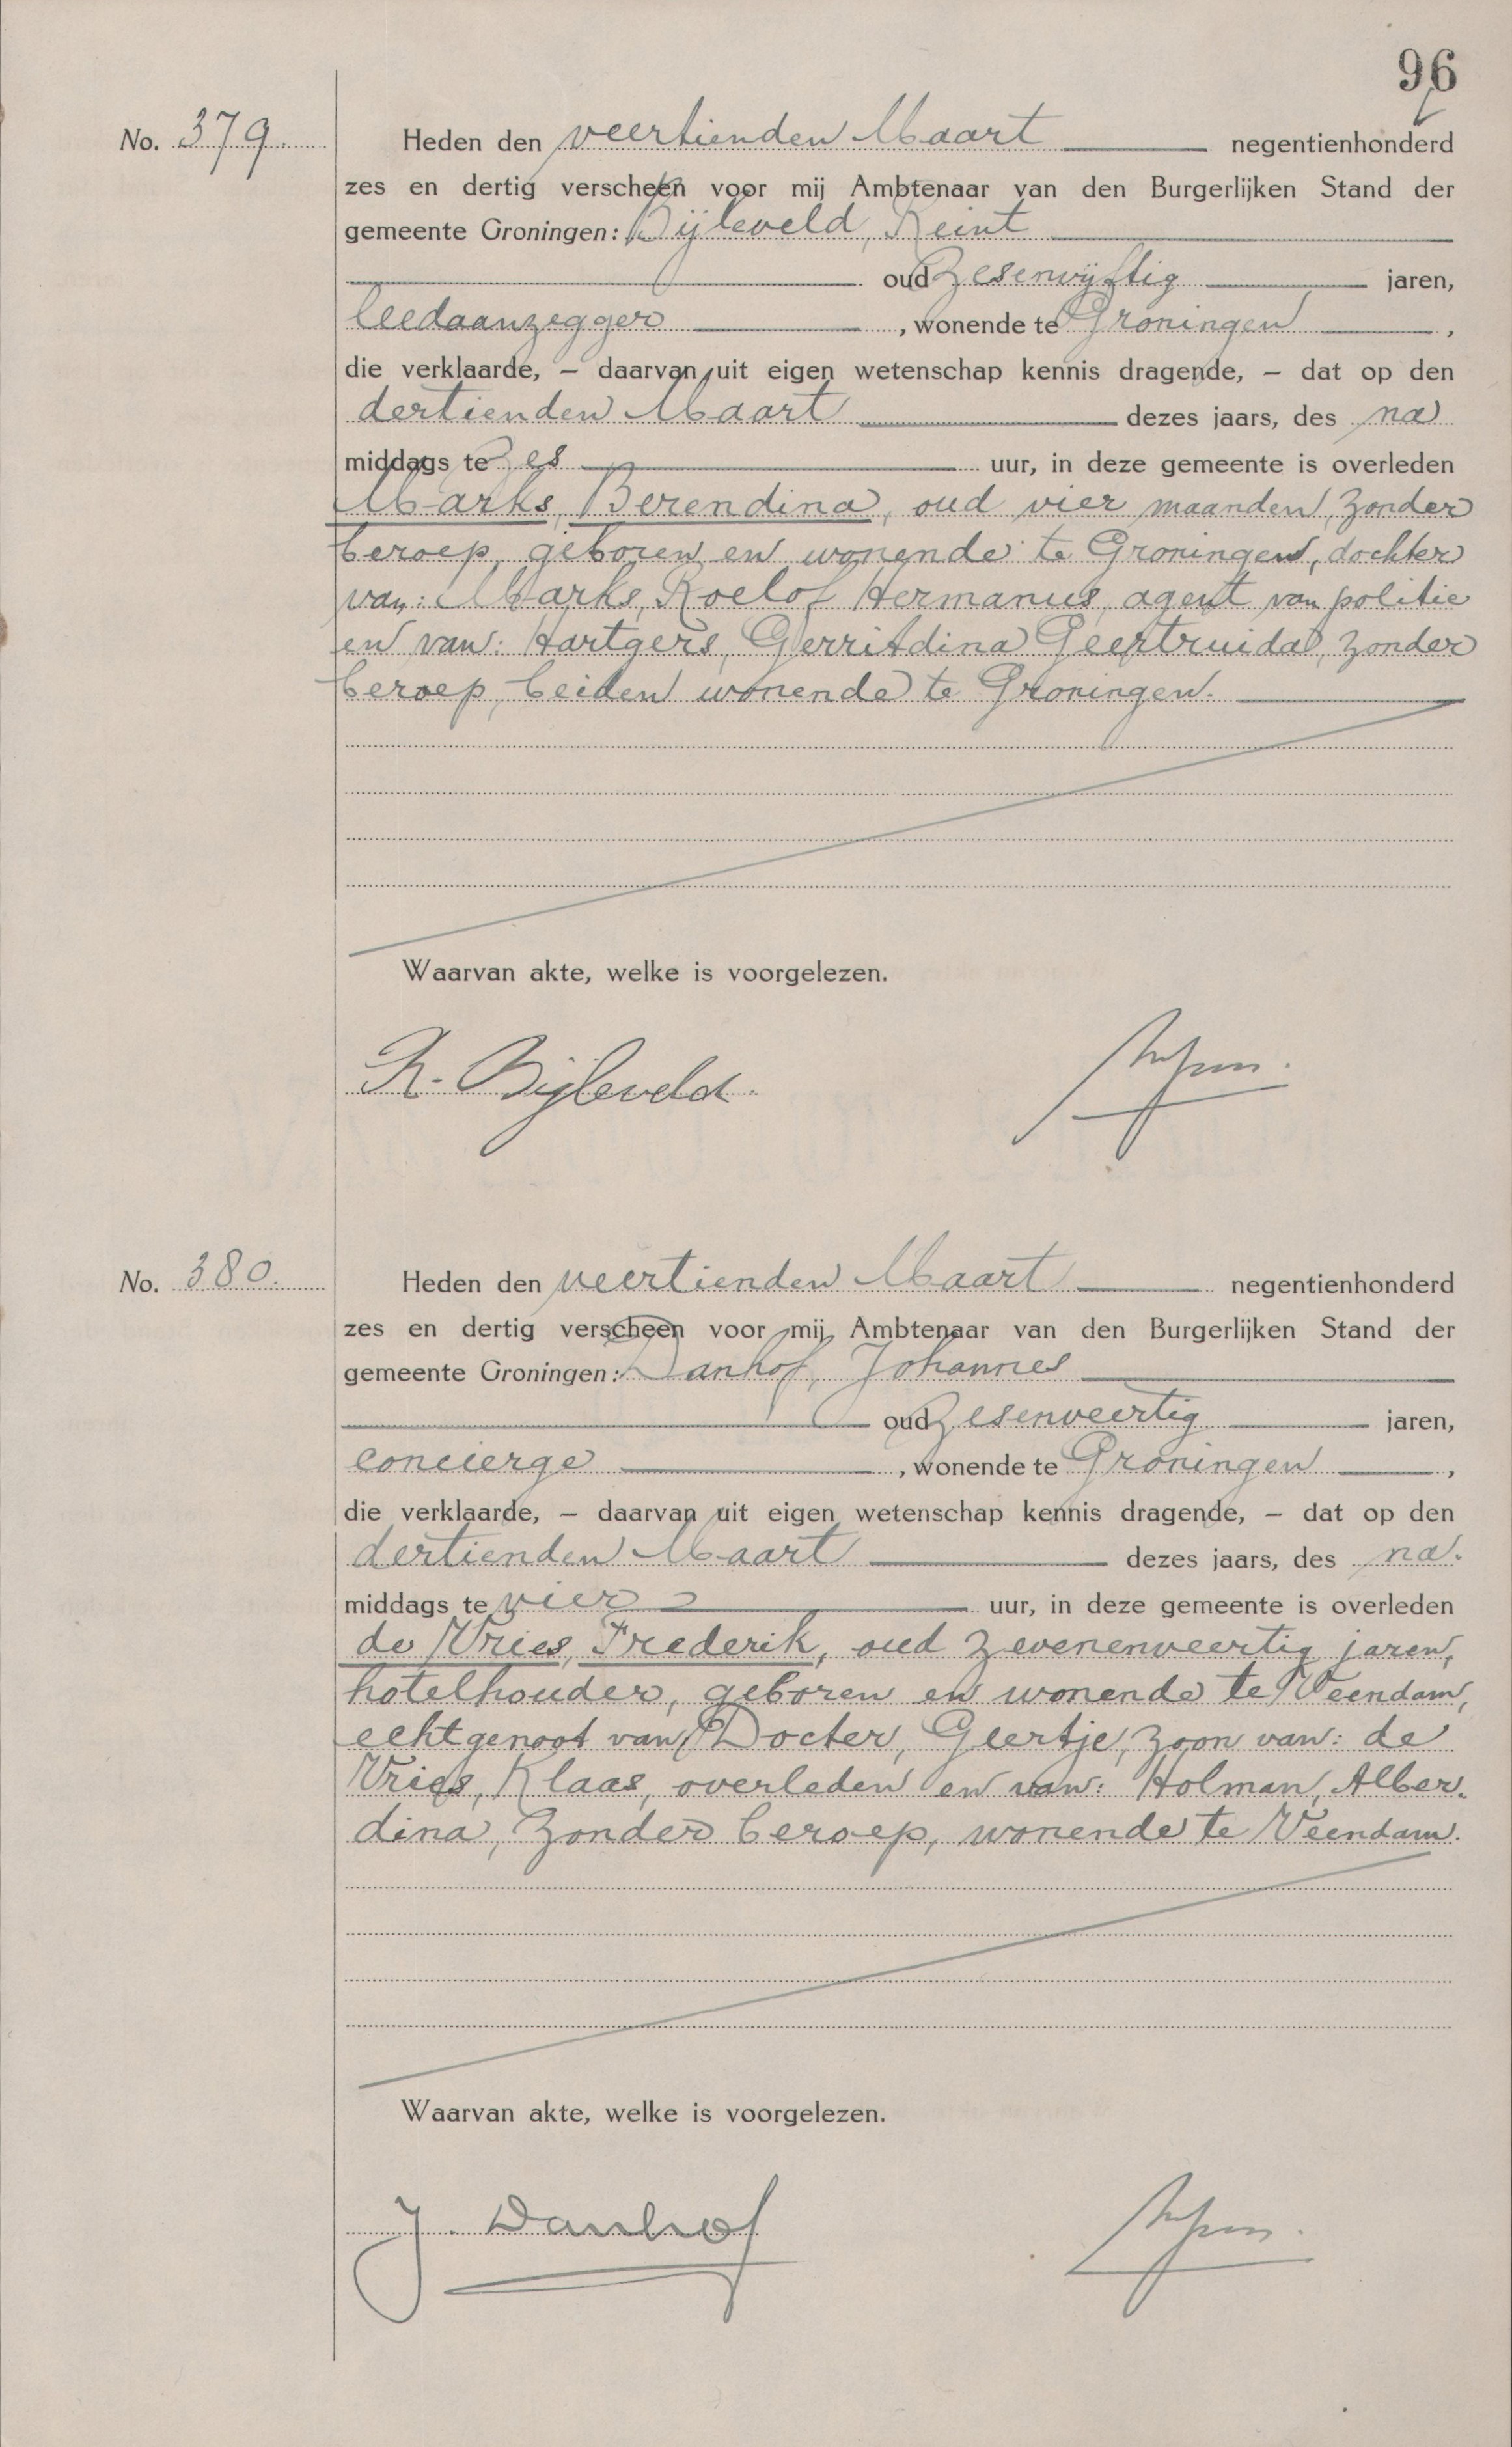 96
No. 379.
Heden den veertienden Maart negentienhonderd
zes en dertig verscheen voor mij Ambtenaar van den Burgerlijken Stand der
gemeente Groningen: Bijleveld, Reint
oud zesenvijftig jaren,
leedaanzegger, wonende te Groningen,
die verklaarde, – daarvan uit eigen wetenschap kennis dragende, – dat op den
dertienden Maart dezes jaars, des na
middags te zes uur, in deze gemeente is overleden
Marks, Berendina, oud vier maanden, zonder
beroep, geboren en wonende te Groningen, dochter
van: Marks, Roelof Hermanus, agent van politie
en van: Hartgers, Gerritdina Geertruida, zonder
beroep, beiden wonende te Groningen.
Waarvan akte, welke is voorgelezen.
R. Bijleveld.
No. 380.
Heden den veertienden Maart negentienhonderd
zes en dertig verscheen voor mij Ambtenaar van den Burgerlijken Stand der
gemeente Groningen: Danhof, Johannes
oud zesenveertig jaren,
concierge, wonende te Groningen,
die verklaarde, – daarvan uit eigen wetenschap kennis dragende, – dat op den
dertienden Maart dezes jaars, des na.
middags te vier uur, in deze gemeente is overleden
de Vries, Frederik, oud zevenenveertig jaren,
hotelhouder, geboren en wonende te Veendam,
echtgenoot van Docter, Geertje, zoon van: de
Vries, Klaas, overleden en van: Holman, Alber-
dina, zonder beroep, wonende te Veendam.
Waarvan akte, welke is voorgelezen.
J. Danhof